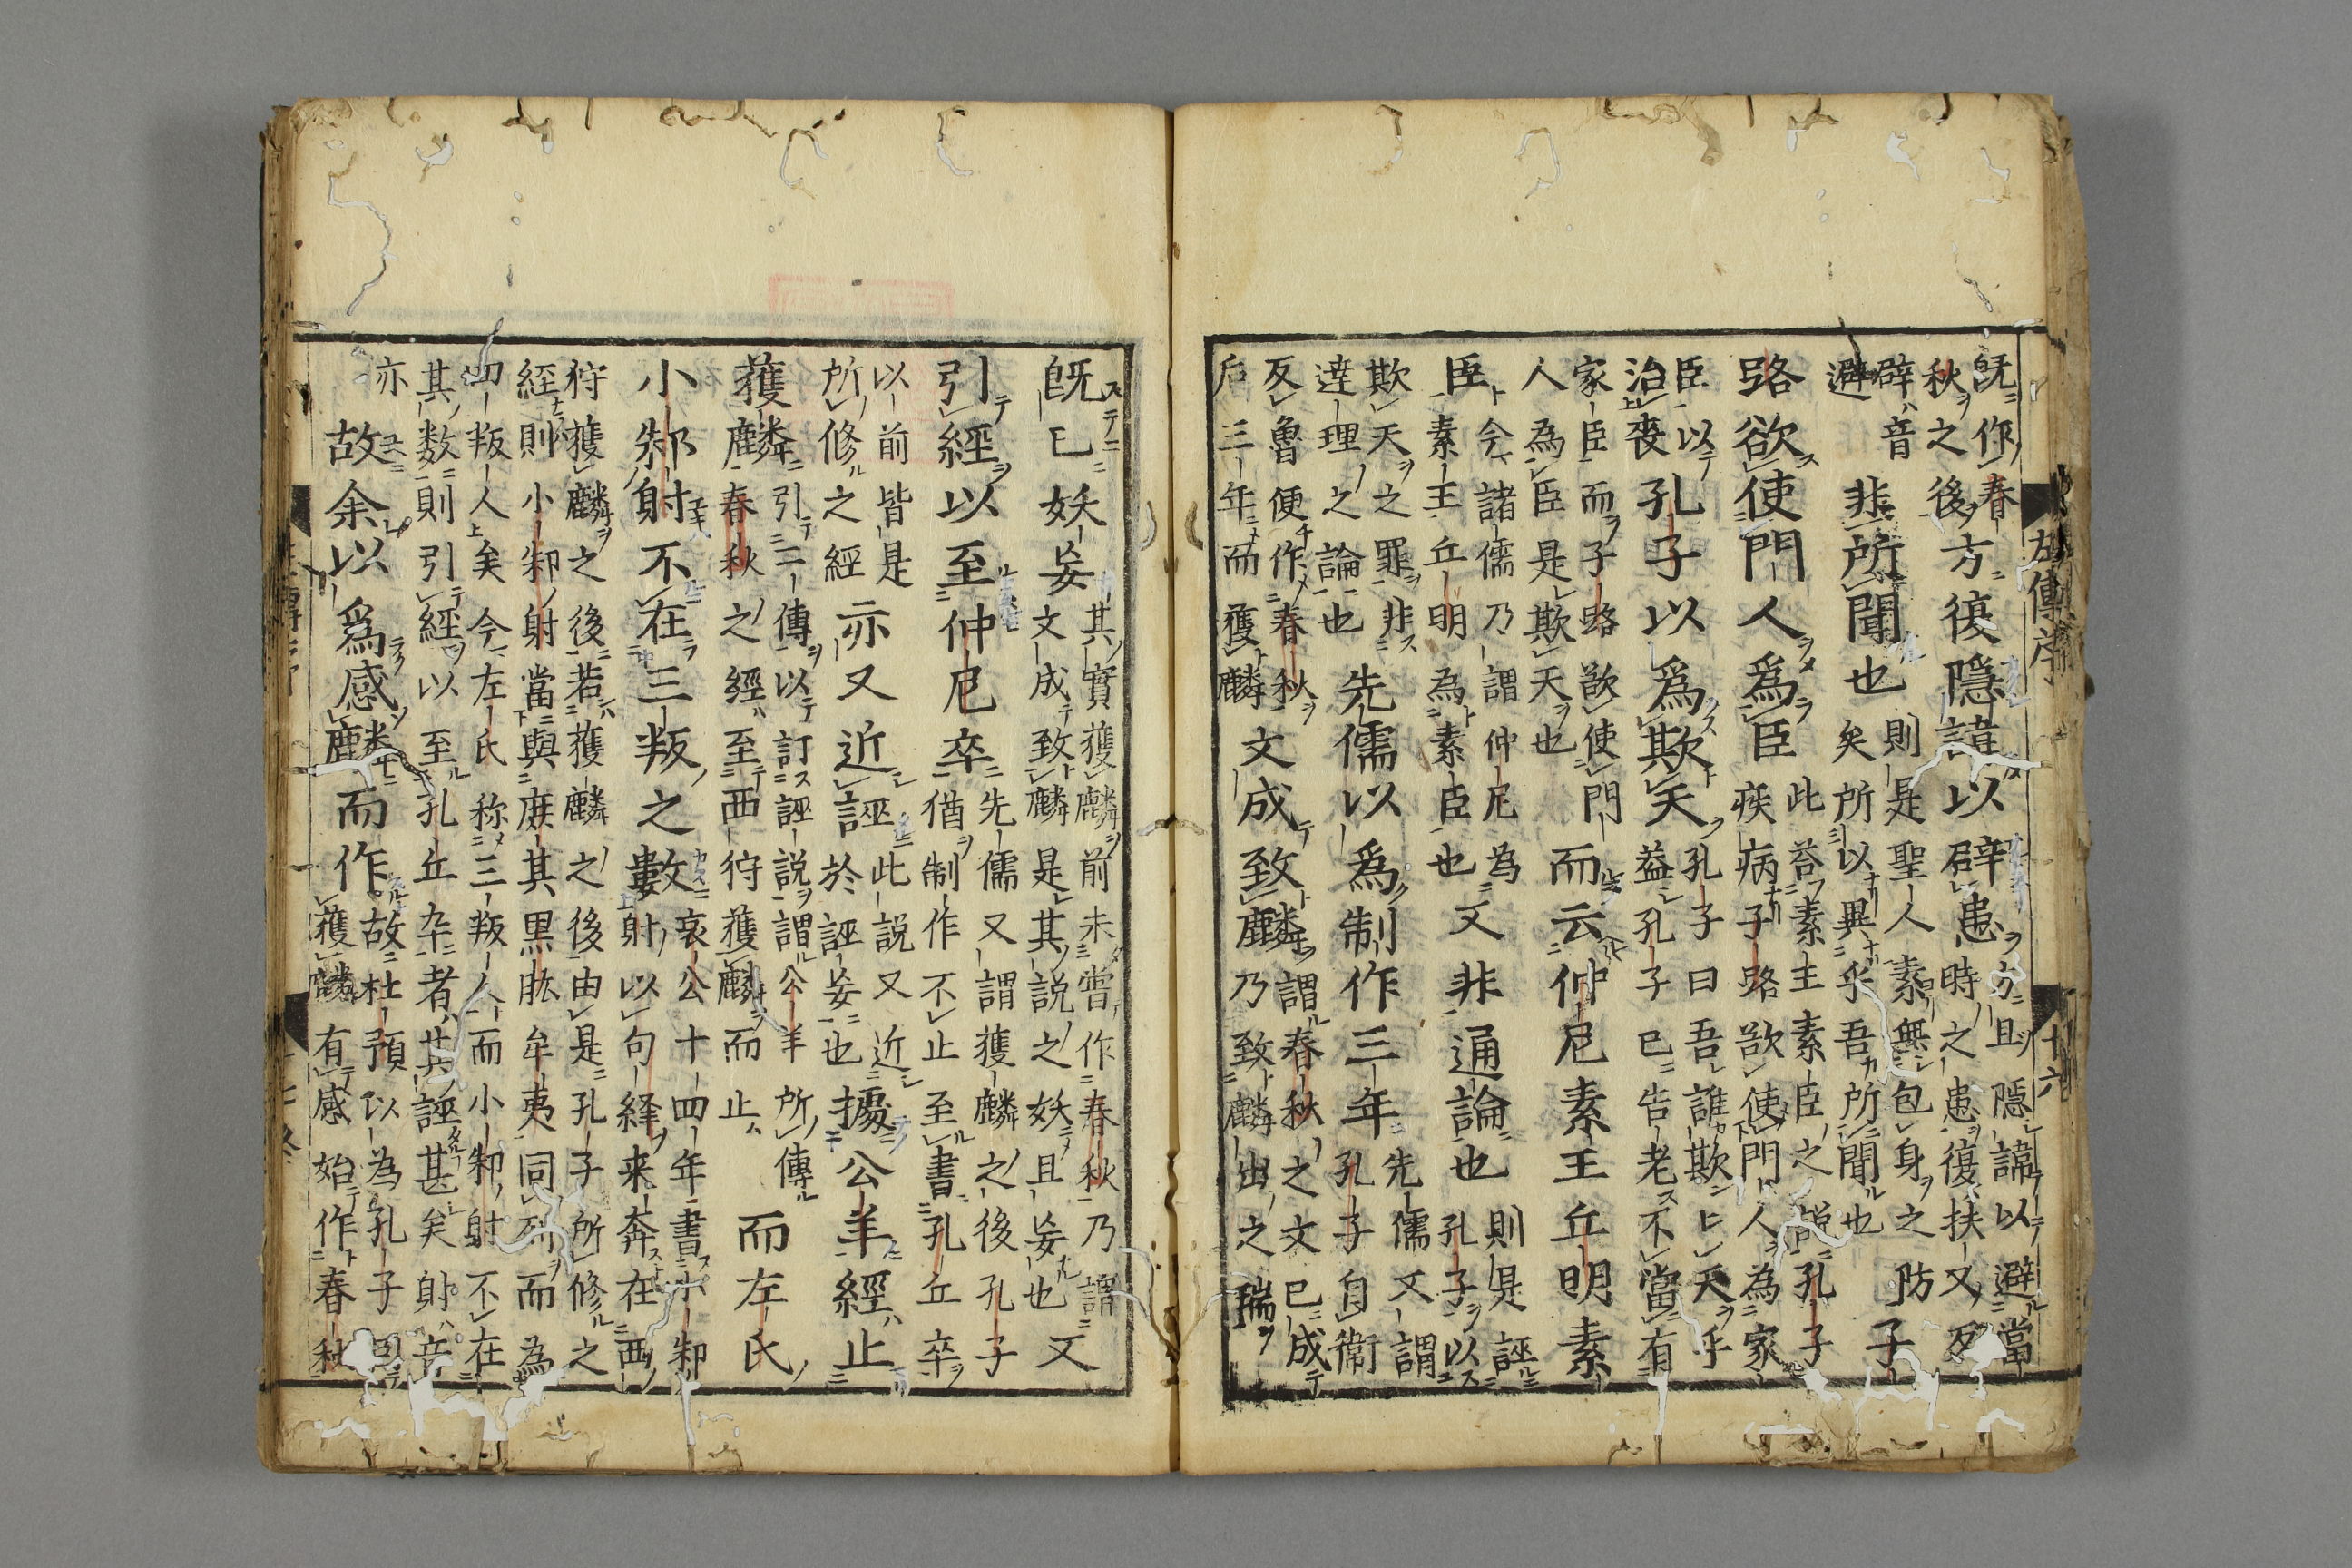 既作春
秋之後
方復隱諱以辟患
方且隱諱以避當
時之患復扶又反
辟音
避
非所聞也
則是聖人素無包身之防
矣所以異乎吾所聞也
子
路欲使門人爲臣
此荅素王素臣之說孔子
疾病子路欲使門人為家
臣以
治喪
孔子以爲欺天
孔子曰吾誰欺〻天乎
蓋孔子已告老不當有
家臣而子路欲使門
人為臣是欺天也
而云仲尼素王丘明素
臣
今諸儒乃謂仲尼為
素王丘明為素臣也
又非通論也
則是誣
孔子以
欺天之罪非
達理之論也
先儒以爲制作三年
先儒又謂
孔子自衞
反魯便作春秋
后三年而獲麟
文成致麟
謂春秋之文已成
乃致麟出之瑞
左傳序
十六
既已妖妄
其實獲麟前未嘗作春秋乃謂
文成致麟是其說之妖且妄也
又
引經以至仲尼卒
先儒又謂獲麟之後孔子
猶制作不止至書孔丘卒
以前皆是
所修之經
亦又近誣
此說又近
於誣妄也
據公羊經止
獲麟
引二傳以訂誣說謂公羊所傳
春秋之經至西狩獲麟而止
而左氏
小邾射不在三叛之數
哀公十四年書小邾
射以句繹来奔在西
狩獲麟之後若獲麟之後由是孔子所修之
經則小邾射當與庶其黒肱牟夷同列而為
四叛人矣今左氏称三叛人而小邾射不在
其数則引經以至孔丘卒者其誣甚矣射音
亦
故余以爲感麟而作
故杜預以為孔子因
獲麟有感始作春秋